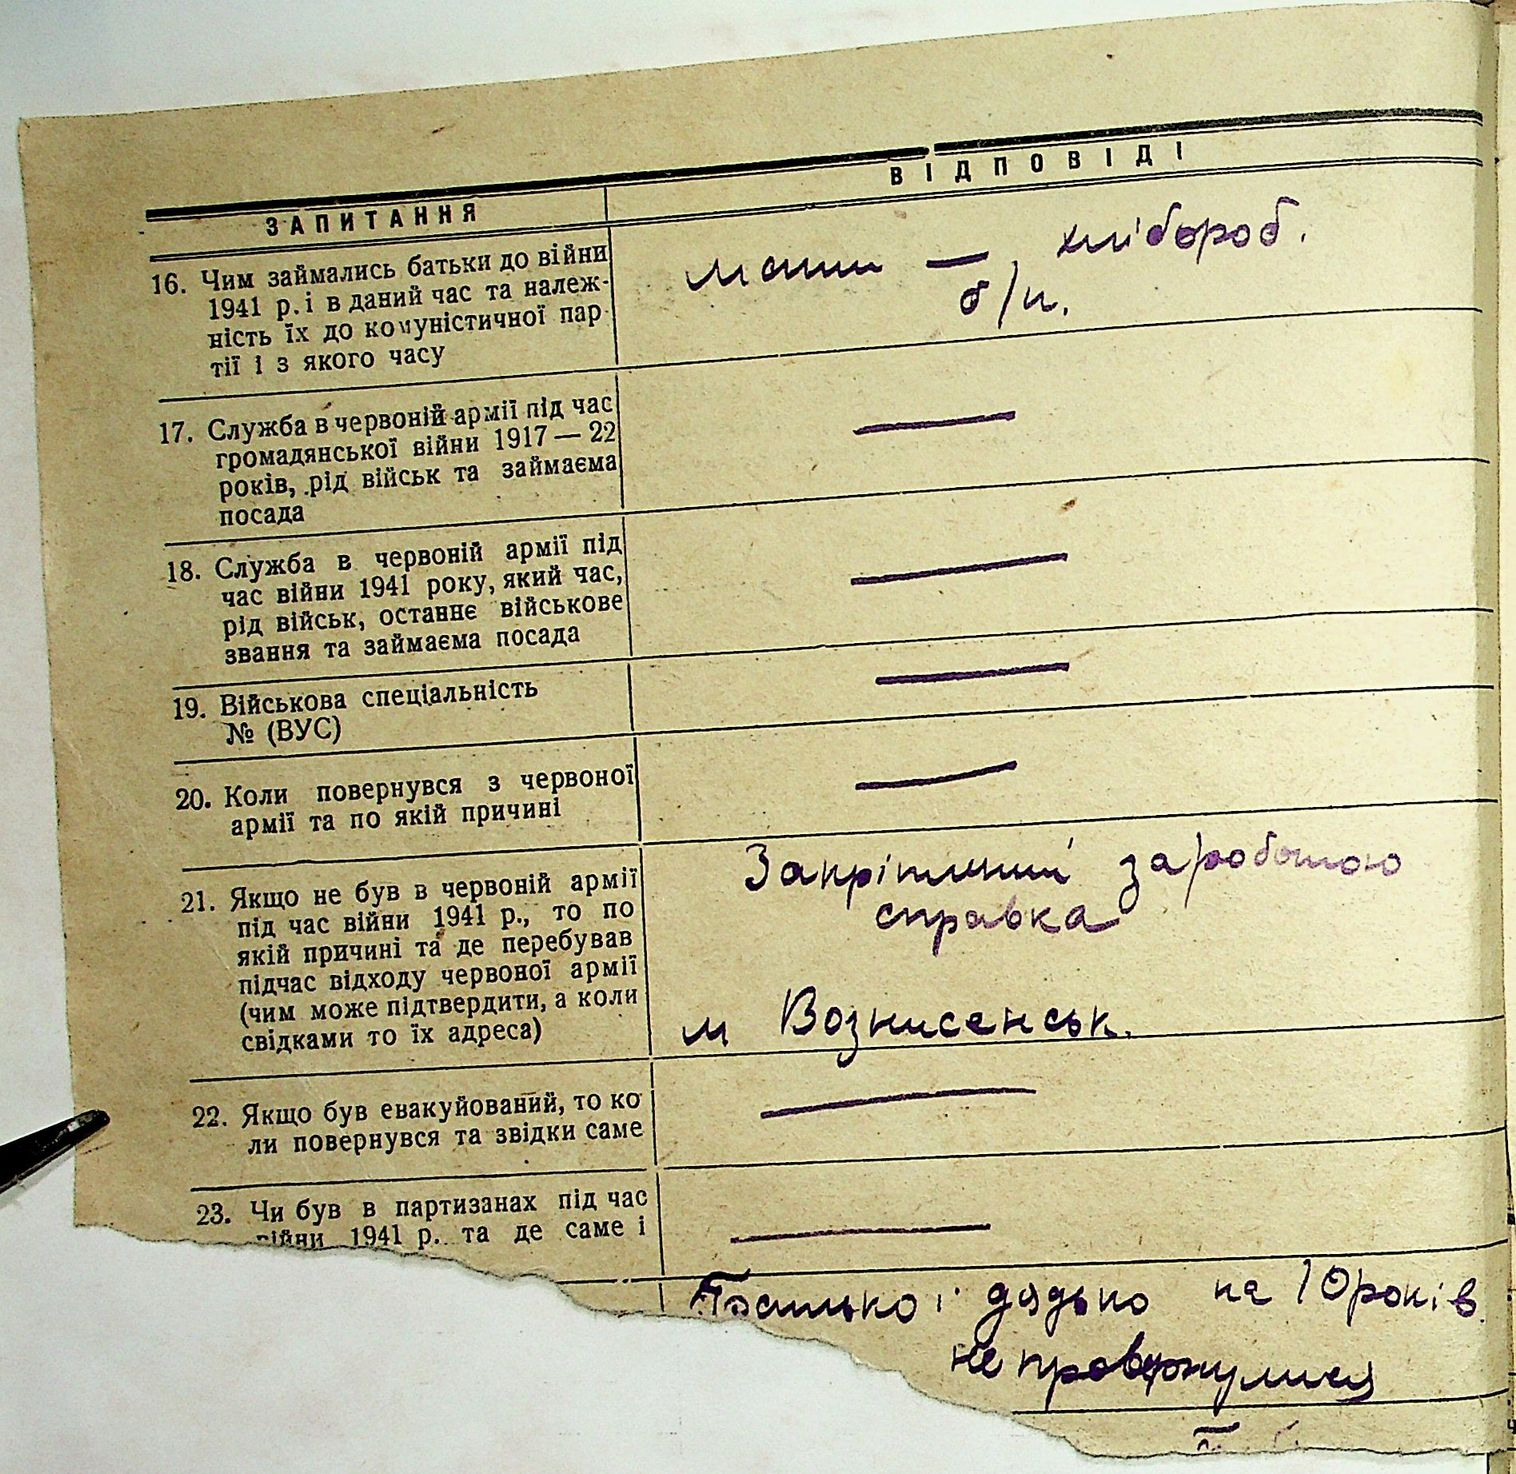 ЗАПИТАННЯ
ВІДПОВІДІ
16. Чим займались батьки до війни
1941 р. і в даний час та належ-
ність їх до комуністичної пар-
тії і з якого часу
мати — , хлібороб.
б/п.
17. Служба в червоній армії під час
громадянської війни 1917 — 22
років, рід військ та займаєма
посада
—
18. Служба в червоній армії під
час війни 1941 року, який час,
рід військ, останнє військове
звання та займаєма посада
—
19. Військова спеціальність
№ (ВУС)
—
20. Коли повернувся з червоної
армії та по якій причині
—
21. Якщо не був в червоній армії
під час війни 1941 р., то по
якій причині та де перебував
підчас відходу червоної армії
(чим може підтвердити, а коли
свідками то їх адреса)
Закріплений за роботою
справка
м Вознисенськ.
22. Якщо був евакуйований, то ко
ли повернувся та звідки саме
—
23. Чи був в партизанах під час
війни 1941 р. та де саме і
—
Батько і дядько на 10 років
не провернулися